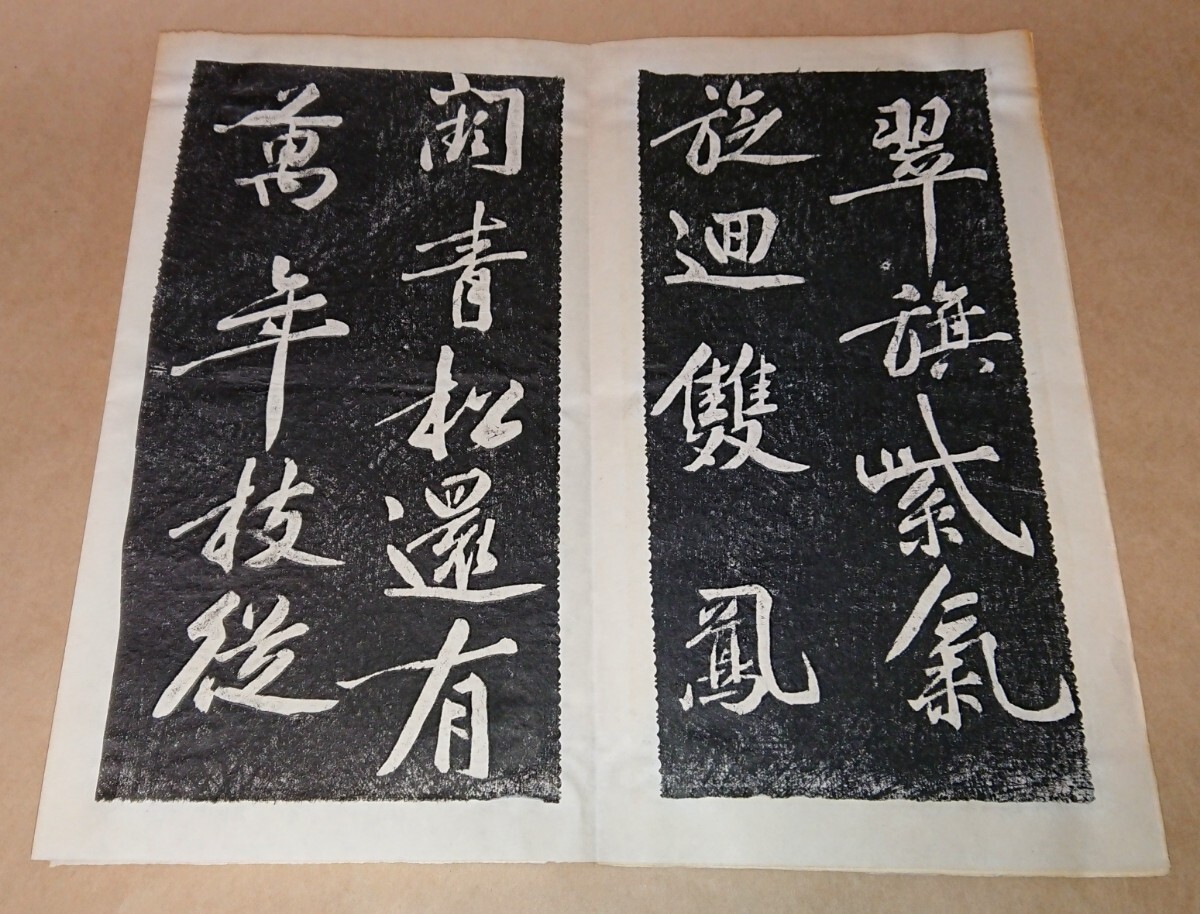 翠旗紫氣
旋迴雙鳳
闕青松還有
萬年枝從